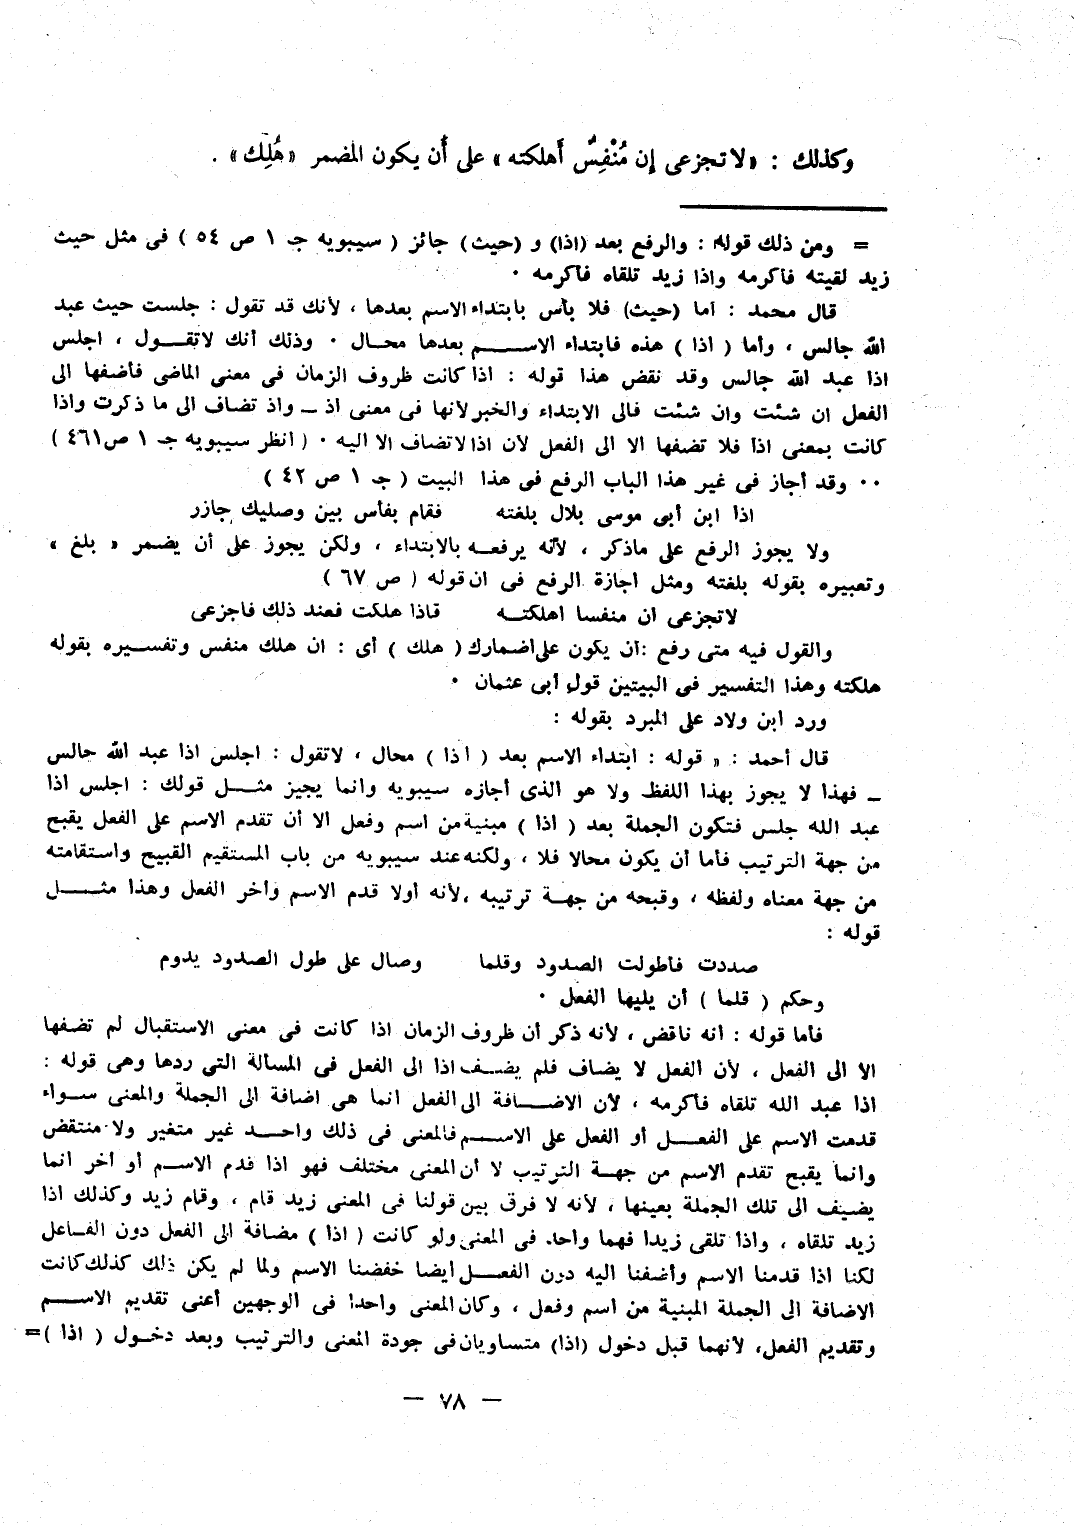 وكذلك : «لا تجزعى إن مُنْفِسٌ أَهلكته» على أَن يكون المضمر «هُلِكَ» .
= ومن ذلك قوله : والرفع بعد (اذا) و (حيث) جائز ( سيبويه جـ ١ ص ٥٤ ) فى مثل حيث
زيد لقيته فأكرمه واذا زيد تلقاه فأكرمه ٠
قال محمد : اما (حيث) فلا بأس بابتداء الاسم بعدها ، لأنك قد تقول : جلست حيث عبد
الله جالس ، وأما ( اذا ) هذه فابتداء الاســـم بعدها محــال ٠ وذلك أنك لاتقــول ، اجلس
اذا عبد الله جالس وقد نقض هذا قوله : اذا كانت ظروف الزمان فى معنى الماضى فأضفها الى
الفعل ان شئت وان شئت فالى الابتداء والخبر لأنها فى معنى اذ ــ واذ تضاف الى ما ذكرت واذا
كانت بمعنى اذا فلا تضفها الا الى الفعل لأن اذا لاتضاف الا اليه ٠ ( انظر سيبويه جـ ١ ص٤٦١ )
٠٠ وقد أجاز فى غير هذا الباب الرفع فى هذا البيت ( جـ ١ ص ٤٢ )
اذا ابن أبى موسى بلال بلغته فقام بفأس بين وصليك جازر
ولا يجوز الرفع على ماذكر ، لأنه يرفعــه بالابتداء ، ولكن يجوز على أن يضمر « بلغ »
وتعبيره بقوله بلغته ومثل اجازة الرفع فى ان قوله ( ص ٦٧ )
لاتجزعى ان منفسا اهلكتــه فاذا هلكت فعند ذلك فاجزعى
والقول فيه متى رفع :أن يكون على اضمارك ( هلك ) أى : ان هلك منفس وتفســيره بقوله
هلكته وهذا التفسير فى البيتين قول أبى عثمان ٠
ورد ابن ولاد على المبرد بقوله :
قال أحمد : « قوله : ابتداء الاسم بعد ( اذا ) محال ، لاتقول : اجلس اذا عبد الله جالس
ــ فهذا لا يجوز بهذا اللفظ ولا هو الذى أجازه سيبويه وانما يجيز مثــل قولك : اجلس اذا
عبد الله جلس فتكون الجملة بعد ( اذا ) مبنية من اسم وفعل الا أن تقدم الاسم على الفعل يقبح
من جهة الترتيب فأما أن يكون محالا فلا ، ولكنه عند سيبويه من باب المستقيم القبيح واستقامته
من جهة معناه ولفظه ، وقبحه من جهــة ترتيبه ،لأنه أولا قدم الاسم وأخر الفعل وهذا مثـــل
قوله :
صددت فأطولت الصدود وقلما وصال على طول الصدود يدوم
وحكم ( قلما ) أن يليها الفعل ٠
فأما قوله : انه ناقض ، لأنه ذكر أن ظروف الزمان اذا كانت فى معنى الاستقبال لم تضفها
الا الى الفعل ، لأن الفعل لا يضاف فلم يضــف اذا الى الفعل فى المسألة التى ردها وهى قوله :
اذا عبد الله تلقاه فأكرمه ، لأن الاضـــافة الى الفعل انما هى اضافة الى الجملة والمعنى ســواء
قدمت الاسم على الفعــل أو الفعل على الاســم فالمعنى فى ذلك واحــد غير متغير ولا منتقض
وانما يقبح تقدم الاسم من جهــة الترتيب لا أن المعنى مختلف فهو اذا قدم الاســم أو أخر انما
يضيف الى تلك الجملة بعينها ، لأنه لا فرق بين قولنا فى المعنى زيد قام ، وقام زيد وكذلك اذا
زيد تلقاه ، واذا تلقى زيدا فهما واحد فى المعنى ولو كانت ( اذا ) مضافة الى الفعل دون الفــاعل
لكنا اذا قدمنا الاسم وأضفنا اليه دون الفعــل أيضا خفضنا الاسم ولما لم يكن ذلك كذلك كانت
الاضافة الى الجملة المبنية من اسم وفعل ، وكان المعنى واحدا فى الوجهين أعنى تقديم الاســم
وتقديم الفعل، لأنهما قبل دخول (اذا) متساويان فى جودة المعنى والترتيب وبعد دخــول ( اذا )=
— ٧٨ —